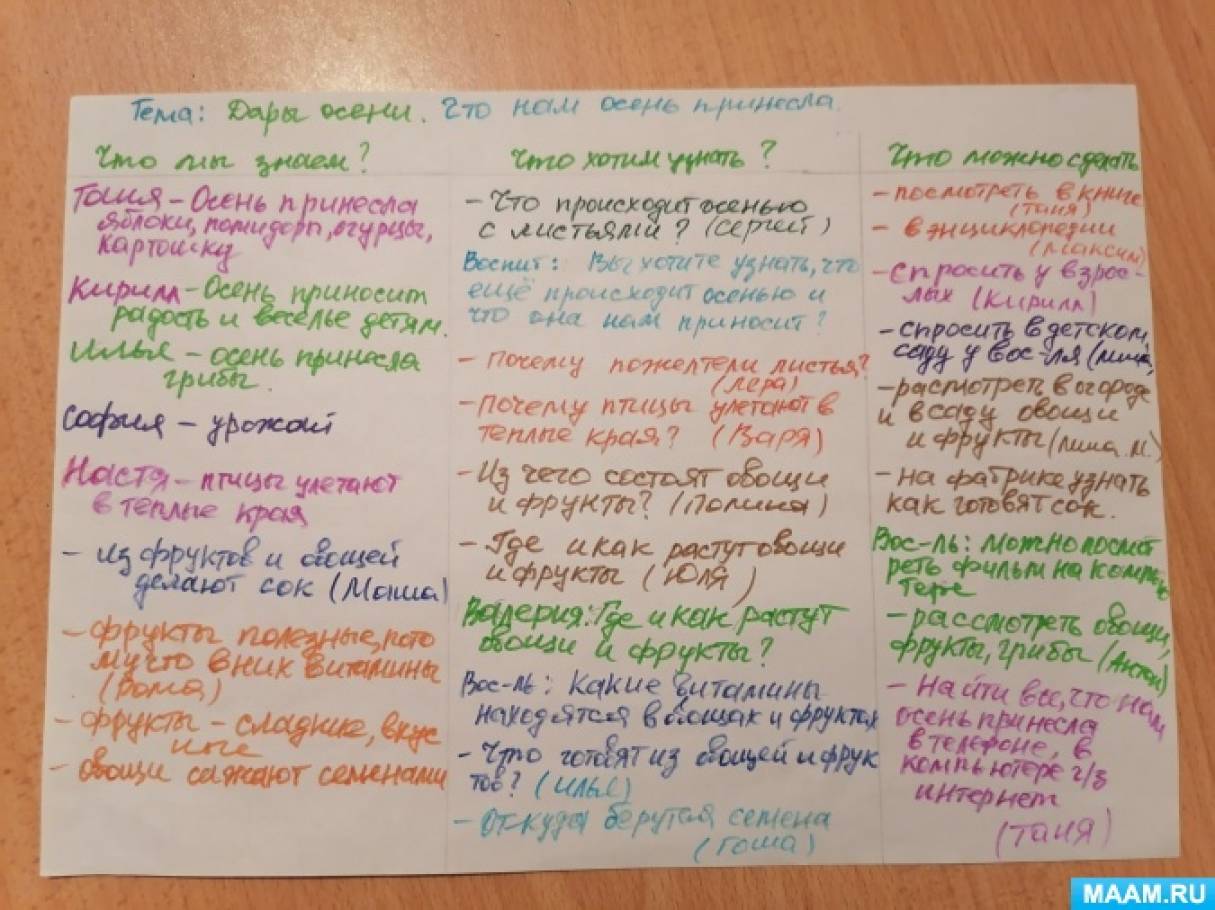 Тема: Дары осени. Что нам осень принесла
Что мы знаем?
Тания – Осень принесла
яблоки, помидоры, огурцы,
картошку
Кирилл – Осень приносит
радость и веселье детям.
Илья – осень принесла
грибы.
София – урожай
Настя – птицы улетают
в теплые края
– из фруктов и овощей
делают сок (Маша)
– фрукты полезные, пото
му что в них витамины
(Рома)
– фрукты – сладкие, вкус
ные
– Овощи сажают семенами
Что хотим узнать?
– Что происходит осенью
с листьями? (Сергей)
Воспит: Вы хотите узнать, что
ещё происходит осенью и
что она нам приносит?
– Почему пожелтели листья?
(Лера)
– Почему птицы улетают в
теплые края? (Варя)
– Из чего состоят овощи
и фрукты? (Полина)
– Где и как растут овощи
и фрукты (Юля)
Валерия: Где и как растут
овощи и фрукты?
Вос-ль: Какие витамины
находятся в овощах и фруктах
– Что готовят из овощей и фрук
тов? (Илья)
– Откуда берутся семена
(Гоша)
Что можно сделать
– посмотреть в книге
(Таня)
– в энциклопедии
(Максим)
– спросить у взрос-
лых (Кирилл)
– спросить в детском
саду у вос-ля (Лиша,
– расмотреть в огороде
и в саду овощи
и фрукты (Лиша. М.)
– на фабрике узнать
как готовят сок.
Вос-ль: Можно посмот
реть фильм на компью
тере
– рассмотреть овощи,
фрукты, грибы (Антон)
– Найти все, что нам
осень принесла
в телефоне, в
компьютере ч/з
интернет
(Таня)
MAAM.RU